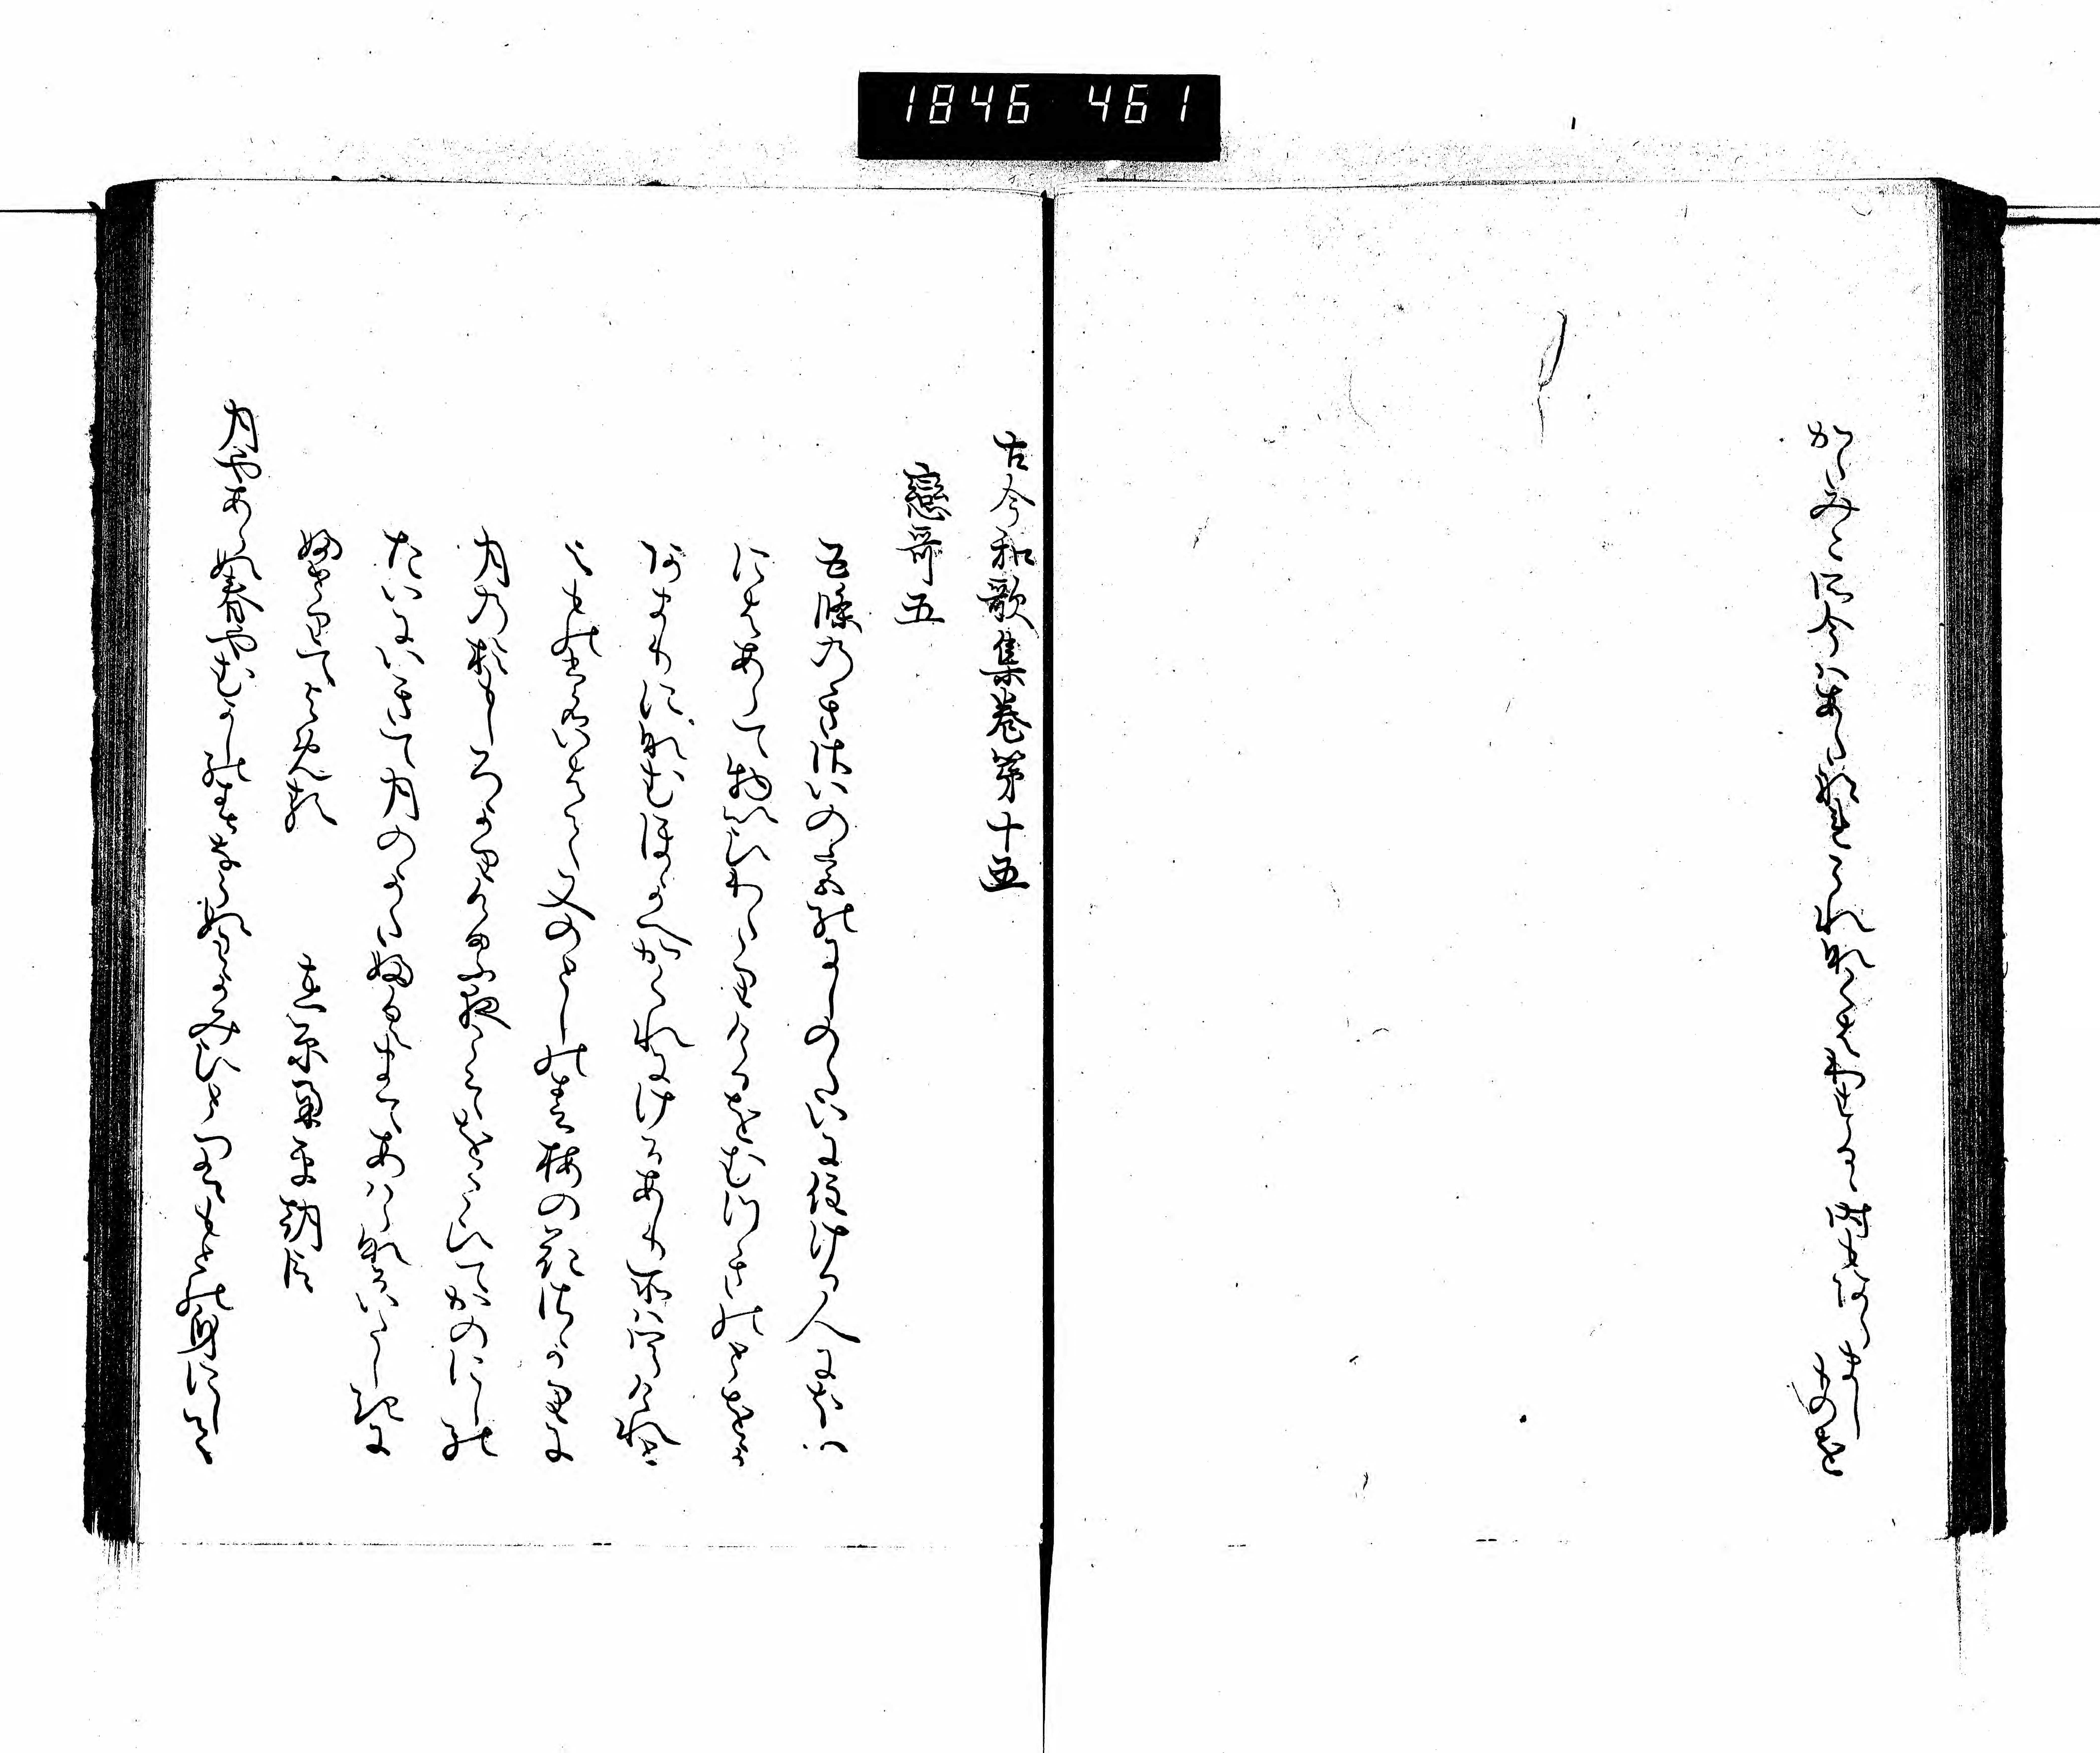 1846 461
かたみこそ今はあたなれこれなくはわするゝ時もあらましものを
古今和歌集巻第十五
戀哥五
五條のきさいの宮のにしのたいに住ける人にほい
にはあらて物いひわたりけるをむ月のとをかあ
まりになむほかへかくれにけるあり所はきゝけれと
え物もいはて又のとしの春梅の花さかりに
月のおもしろかりける夜こそをこひてかのにしの
たいにいきて月のかたふくまてあはらなるいたしきに
ふせりてよめる
在原業平朝臣
月やあらぬ春やむかしの春ならぬわかみひとつはもとの身にして